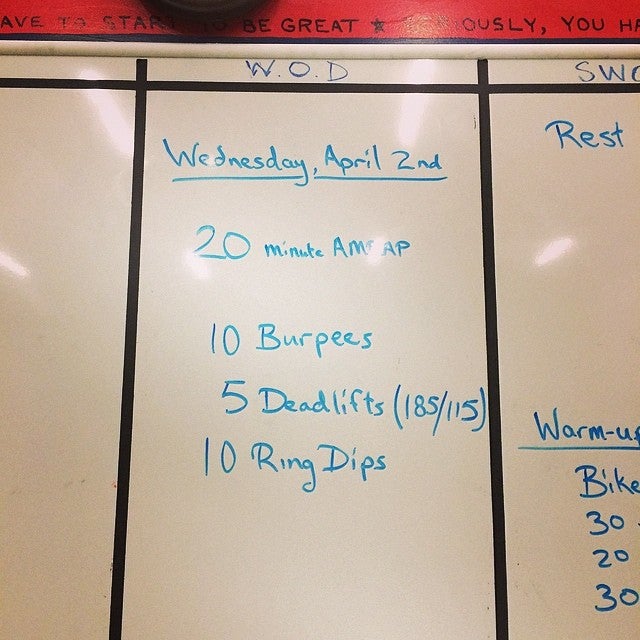 AVE TO START TO BE GREAT ★ SERIOUSLY, YOU HA
W.O.D
Wednesday, April 2nd
20 minute AMRAP
10 Burpees
5 Deadlifts (185/115)
10 Ring Dips
SWO
Rest
Warm-up
Bike
30
20
30